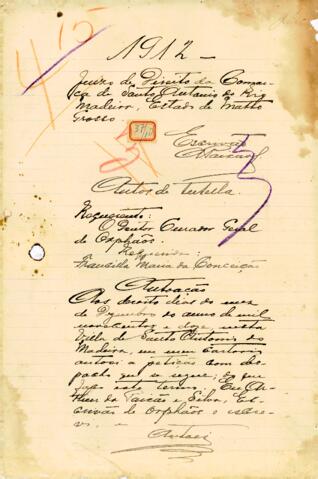 4/15
1912 —
Juizo de Direito da Comar-
ca de Santo Antonio do Rio
Madeira, Estado de Matto
Grosso.
Escrivão
Autos de Tutella.
Requerente:
O Doutor Curador Geral
de Orphãos.
Requerida:
Maria da Conceição
Autoação
Aos dezoito dias do mez
de Dezembro do anno de mil
novecentos e doze, nesta
Villa de Santo Antonio do
Madeira, em meu cartorio
autoei a petição com des-
pacho que se segue; do que
faço este termo. Eu, Ar-
thur da e Silva, Es-
crivão de Orphãos o escre-
vi.